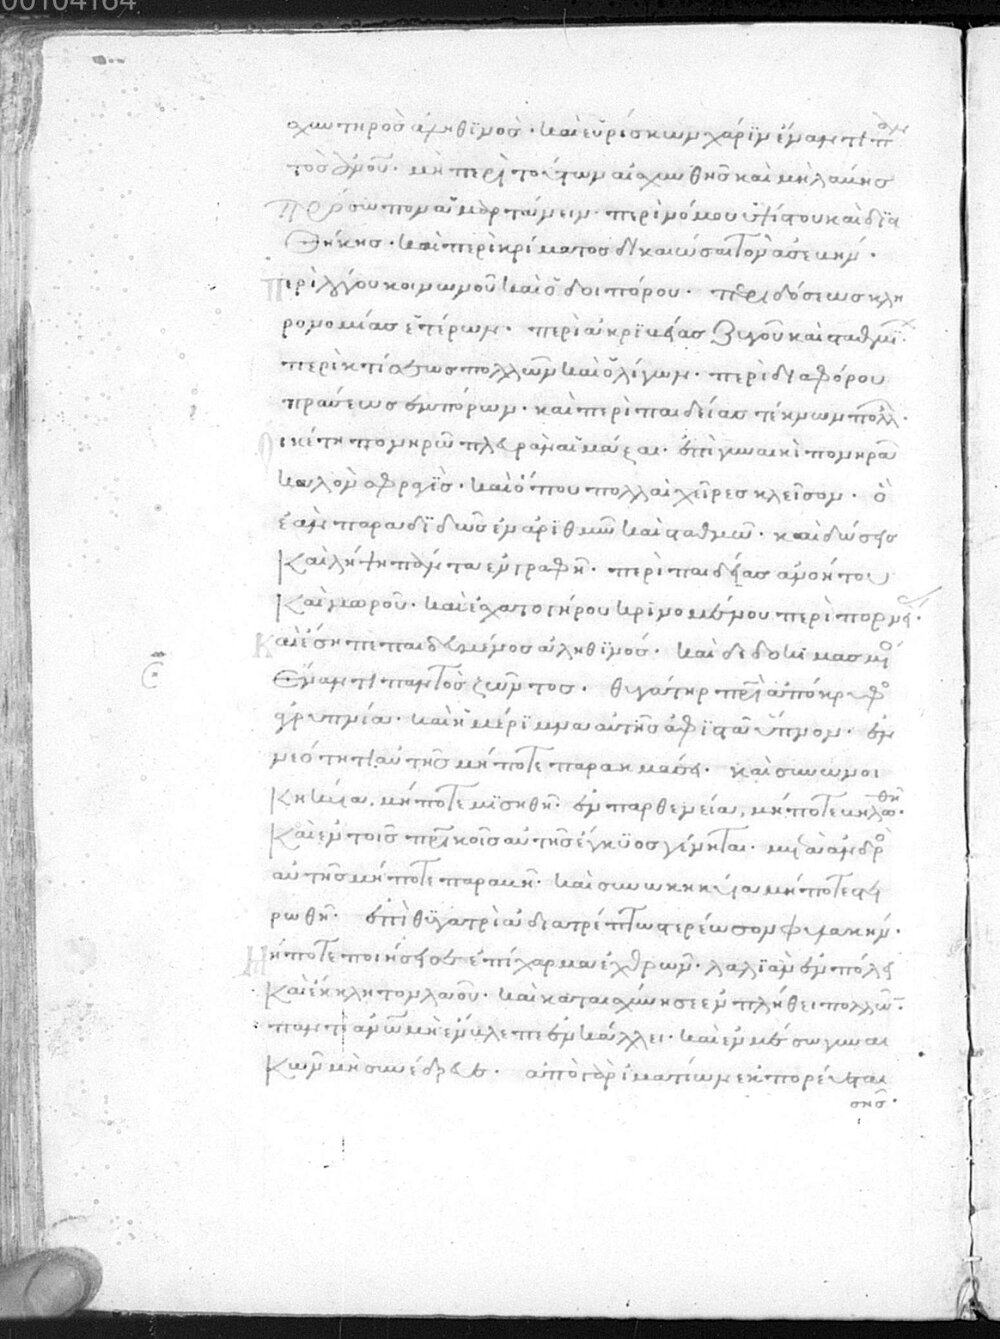 00104164
χυντηρὸς ἀληθινὸς. καὶ εὑρίσκων χάριν ἔναντι παν
τὸς ἀνοῦ. μὴ περὶ τούτων αἰσχυνθῆς καὶ μὴ λάβης
πρόσωπον ἁμαρτάνειν. περὶ νόμου ὑψίστου καὶ δια
θήκης. καὶ περὶ κρίματος δικαιῶσαι τὸν ἀσεβῆ.
περὶ λόγου κοινωνοῦ καὶ ὁδοιπόρου. περὶ δόσεως κλη
ρονομίας ἑτέρων. περὶ ἀκριβείας ζυγοῦ καὶ σταθμί
περὶ κτήσεως πολλῶν καὶ ὀλίγων. περὶ διαφόρου
πράσεως ἐμπόρων. καὶ περὶ παιδείας τέκνων πολλ
οἰκέτη πονηρῶ πλευρὰν αἱμάξαι. ἐπὶ γυναικὶ πονηρᾶ
καλὸν σφραγίς. καὶ ὅπου πολλαὶ χεῖρες κλεῖσον. ὃ
ἐὰν παραδιδῶς ἐν ἀριθμῶ καὶ σταθμῶ. καὶ δώσεις
καὶ λήψει πάντα ἐν γραφῆ. περὶ παιδείας ἀνοήτου
καὶ μωροῦ. καὶ ἐσχατογήρου κρινομένου περὶ πορνεί.
καὶ ἔση πεπαιδευμένος ἀληθινός. καὶ δεδοκιμασμέ
ἔναντι παντὸς ζῶντος. θυγάτηρ πρὶ ἀπόκρυφο
ἀγρυπνία. καὶ ἡ μέριμνα αὐτῆς ἀφιστᾶ ὕπνον. ἐν
νεότητι αὐτῆς μήποτε παρακμάση. καὶ συνωκη
κηκυῖα, μήποτε μισηθῆ. ἐν παρθενεία, μήποτε βηλωθῆ.
καὶ ἐν τοῖς πρικοῖς αὐτῆς ἔγκυος γένηται. μετὰ ἀνδρὸ
αὐτῆς μήποτε παραβῆ. καὶ συνωκηκυῖα μήποτε στει
ρωθῆ. ἐπὶ θυγατρὶ ἀδιατρέπτω στερέωσον φυλακήν.
μήποτε ποιήσει σε ἐπίχαρμα ἐχθρῶν. λαλιὰν ἐν πόλει
καὶ ἔκκλητον λαοῦ. καὶ καταισχύνη σε ἐν πλήθει πολλῶν.
παντὶ ἀνῶ μὴ ἔμβλεπε ἐν κάλλει. καὶ ἐν μέσω γυναι
κῶν μὴ συνέδρευε. ἀπὸ γὰρ ἱματίων ἐκπορεύεται
σης.